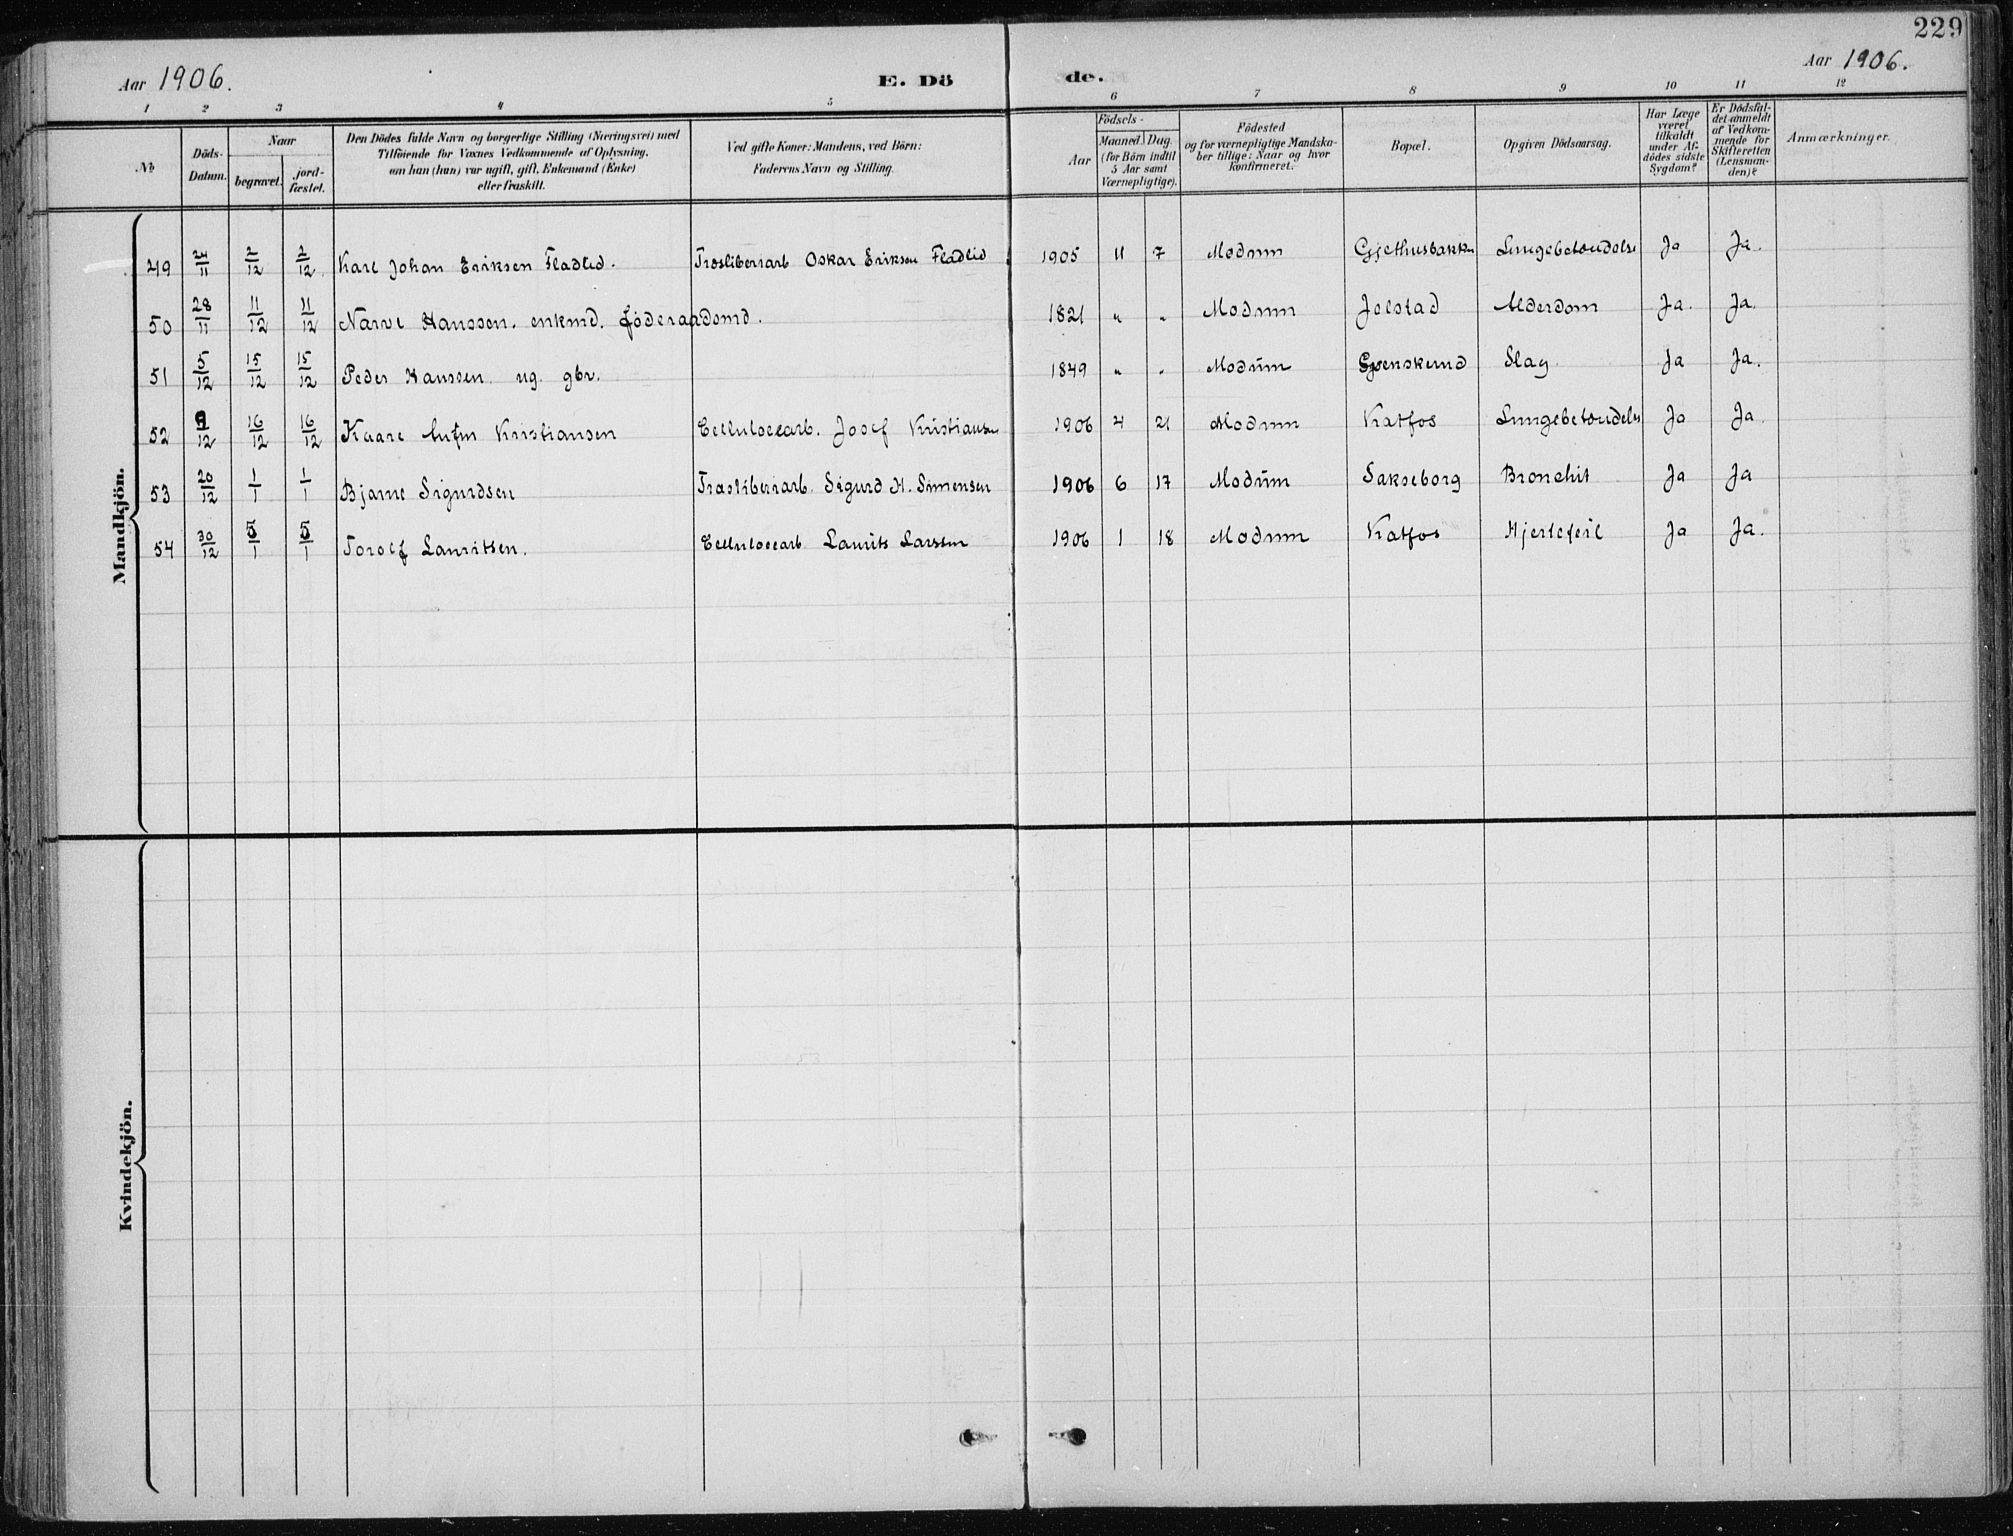 229
Aar 1906.
E. Dö
de.
Aar 1906.
1 2 3 4 5 6 7 8 9 10 11 12
№
Döds-
Datum.
Naar
begravet.
jord-
fæstet.
Den Dödes fulde Navn og borgerlige Stilling (Næringsvei) med
Tilföiende for Voxnes Vedkommende af Oplysning,
om han (hun) var ugift, gift, Enkemand (Enke)
eller fraskilt.
Ved gifte Koner: Mandens, ved Börn:
Faderens Navn og Stilling.
Födsels-
Aar
Maaned. Dag.
(for Börn indtil
5 Aar samt
Værnepligtige).
Födested
og for værnepligtige Mandska-
ber tillige: Naar og hvor
konfirmeret.
Bopæl.
Opgiven Dödsaarsag.
Har Læge
været
tilkaldt
under Af-
dödes sidste
Sygdom?
Er Dödsfal-
det anmeldt
af Vedkom-
mende for
Skifteretten
(Lensman-
den)?
Anmærkninger.
Mandkjön.
49 24/11 2/12 2/12 Karl Johan Eriksen Fladlid. Træsliberiarb Oskar Eriksen Fladlid 1905 11 7 Modum Gjethusbakken Lungebetændelse Ja Ja.
50 28/11 11/12 11/12 Narve Hanssen. enkmd. föderaadsmd. 1821 " " Modum Jelstad Alderdom Ja. Ja.
51 5/12 15/12 15/12 Peder Hanssen ug. gbr. 1849 " " Modum Slag Ja Ja.
52 9/12 16/12 16/12 Kaare Kristiansen Cellulosearb. Josef Kristiansen 1906 4 21 Modum Katfos Lungebetændelse Ja Ja.
53 20/12 1/1 1/1 Bjarne Sigurdsen Træsliberiarb. Sigurd H. Simensen 1906 6 17 Modum Sakseborg Bronchit Ja Ja
54 30/12 5/1 5/1 Torolf Lauritsen. Cellulosearb Laurits Larssen 1906 1 18 Modum Katfos Hjertefeil Ja Ja.
Kvindekjön.